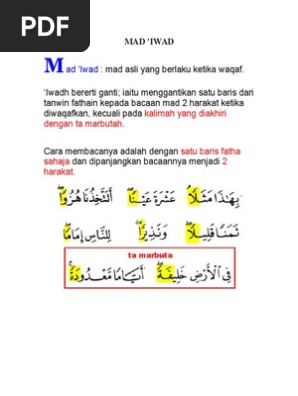 PDF
MAD 'IWAD
Mad 'Iwad : mad asli yang berlaku ketika waqaf.
'Iwadh bererti ganti; iaitu menggantikan satu baris dari
tanwin fathain kepada bacaan mad 2 harakat ketika
diwaqafkan, kecuali pada kalimah yang diakhiri
dengan ta marbutah.
Cara membacanya adalah dengan satu baris fatha
sahaja dan dipanjangkan bacaannya menjadi 2
harakat.
بِهَـٰذَا مَثَلًا ۘ عَشْرَةَ عَيْنًا ۖ أَتَتَّخِذُنَا هُزُوًا ۖ
ثَمَنًا قَلِيلًا ۖ وَنَذِيرًا ۖ لِلنَّاسِ إِمَامًا ۖ
ta marbuta
فِى ٱلْأَرْضِ خَلِيفَةً ۖ أَيَّامًا مَّعْدُودَةً ۚ